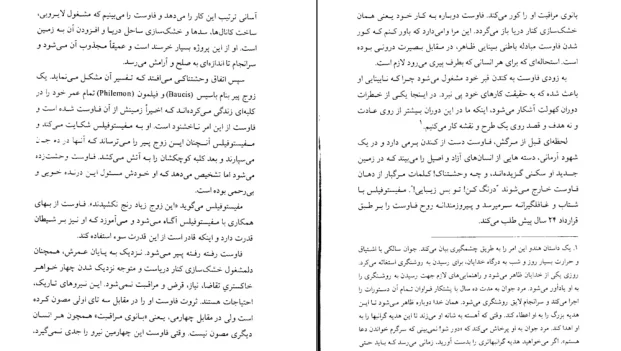 آسانی ترتیب این کار را می‌دهد و فاوست را می‌بینیم که مشغول لایروبی،
ساخت کانال‌ها، سدها و خشک‌سازی ساحل دریا و افزودن آن به زمین
است. او از این پروژه بسیار خرسند است و عمیقاً مجذوب آن می‌شود و
سرانجام تا اندازه‌ای به صلح و آرامش می‌رسد.
سپس اتفاق وحشتناکی می‌افتد کـه تـفسیر آن مشکـل مـی‌نماید. یک
زوج پیر بنام باسیس (Baucis) و فیلمون (Philemon) تمام عمر خود را در
کلبه‌ای زندگی می‌کرده‌انـد کـه اخیـراً زمـینش از آن فـاوست شـده است و
فاوست از این امر نـاخشنود است. او بـه مـفیستوفیلس شکـایت می‌کند و
مفیستوفیلس آنچنان ایـن زوج پیـر را مـی‌ترساند کـه آنـها در ده جـان
می‌سپارند و بعد کلبه کوچکشان را به آتش می‌کشد. فـاوست وحشت‌زده
می‌شود اما تشخیص می‌دهد که او خودش مسئول این درنـده خـویی و
بی‌رحمی بوده است.
مفیستوفیلس می‌گوید «این زوج زیاد رنج نکشیدند». فـاوست از بـهای
همکاری با مفیستوفیلس آگـاه مـی‌شود و مـی‌آموزد کـه او نـیز بـر شـیطان
قدرت دارد و اینکه قادر است از این قدرت سوء استفاده کند.
فاوست رفته رفته پیر می‌شود. نزدیک به پایان عمرش، همچنان
دلمشغول خشک‌سازی کنار دریاست و متوجه نزدیک شدن چهار خواهر
خاکستریِ تقاضا، نیاز، قرض و مراقبت نمی‌شود. این نیروهای تاریک،
احتیاجات هستند. ثروت فاوست او را در مقابل سه تای اولی مصون کرده
است ولی در مقابل چهارمی، یعنی «بـانوی مـراقبت» همچون هـر انسـان
دیگری مصون نیست. وقتی فاوست این چهارمین نیرو را جدی نمی‌گیرد،
بانوی مراقبت او را کور می‌کند. فاوست دوباره بـه کـار خـود یـعنی هـمان
خشک‌سازی کنار دریا باز می‌گردد. این مرا وامی‌دارد که باور کنم که کـور
شدن فاوست مبادله باطنی بینایی ظـاهر، در مـقابل بـصیرت درونـی بـوده
است. استحاله‌ای که برای هر انسانی که بطرف پیری می‌رود لازم است.
به زودی فاوست به کندن قبر خود مشغول می‌شود چـرا کـه نـابینایی او
باعث شده که به حقیقت کارهای خود پی نبرد. در اینجا یکـی از خـطرات
دوران کهولت آشکار می‌شود، اینکه ما در این دوران بیشتر از روی عـادت
و نه هدف و قصد روی یک طرح و نقشه کار می‌کنیم.۱
لحظه‌ای قبل از مرگش، فـاوست دست از کـندن بـرمی دارد و در یک
شهود آرمانی، دسته هایی از انسان‌های آزاد و اصیل را می‌بیند کـه در زمـین
جدید او سکنی گزیده‌انـد، و چـه وحشتناک! کـلمات مـرگبار از دهـان
فاوست خارج می‌شوند "درنگ کن! تـو بس زیبـایی!". مـفیستوفیلس بـا
شتاب و غـافلگیرانه سـرمیرسد و پـیروزمندانه روح فـاوست را بـر طبق
قرارداد ۲۴ سال پیش طلب می‌کند.
۱. یک داستان هندو این امر را به طریق چشمگیری بیان می‌کند. جوان سالکی با اشتیاق
و حرارت بسیار روز و شب به درگاه خدایان، برای رسیدن به روشنگری استغاثه می‌کرد.
روزی یکی از خدایان ظاهر می‌شود و راهنمایی‌های لازم جهت رسیدن به روشنگری را
به او یادآور می‌شود. مرد جوان به مدت ده سال با پشتکار فـراوان تـمام آن دستورات را
اجرا می‌کند و سرانجام لایق روشنگری می‌شود. همان خدا دوباره ظاهر می‌شود تـا ایـن
هدیه بزرگ را به او اعطاء کند. وقتی که آهسته به شانه او می‌زند تا این هدیه گرانبها را به
او اهدا کند، مرد جوان به او پرخاش می‌کند که «دور شو! نمی‌بینی که سرگرم خواندن دعا
هستم». اگر می‌خواهید هدیه گرانبهاتری را بدست آورید، زمانی می‌رسد کـه بـاید حـتی